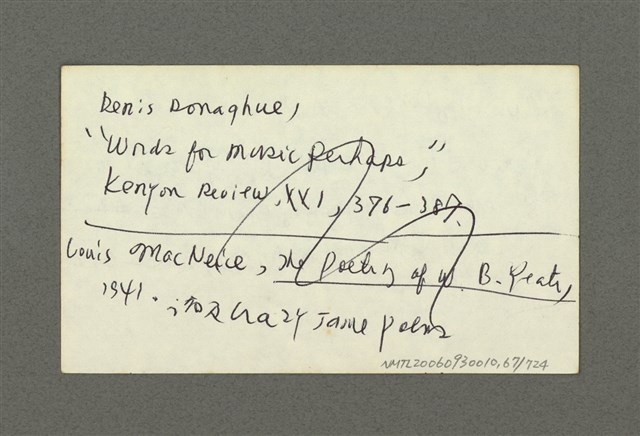 Denis Donaghue,
"Words for music perhaps,"
Kenyon Review, XXI, 376-387.
Louis MacNeice, The Poetry of W. B. Yeats,
1941. 涉及 Crazy Jane poems
NMTL20060930010,67/724